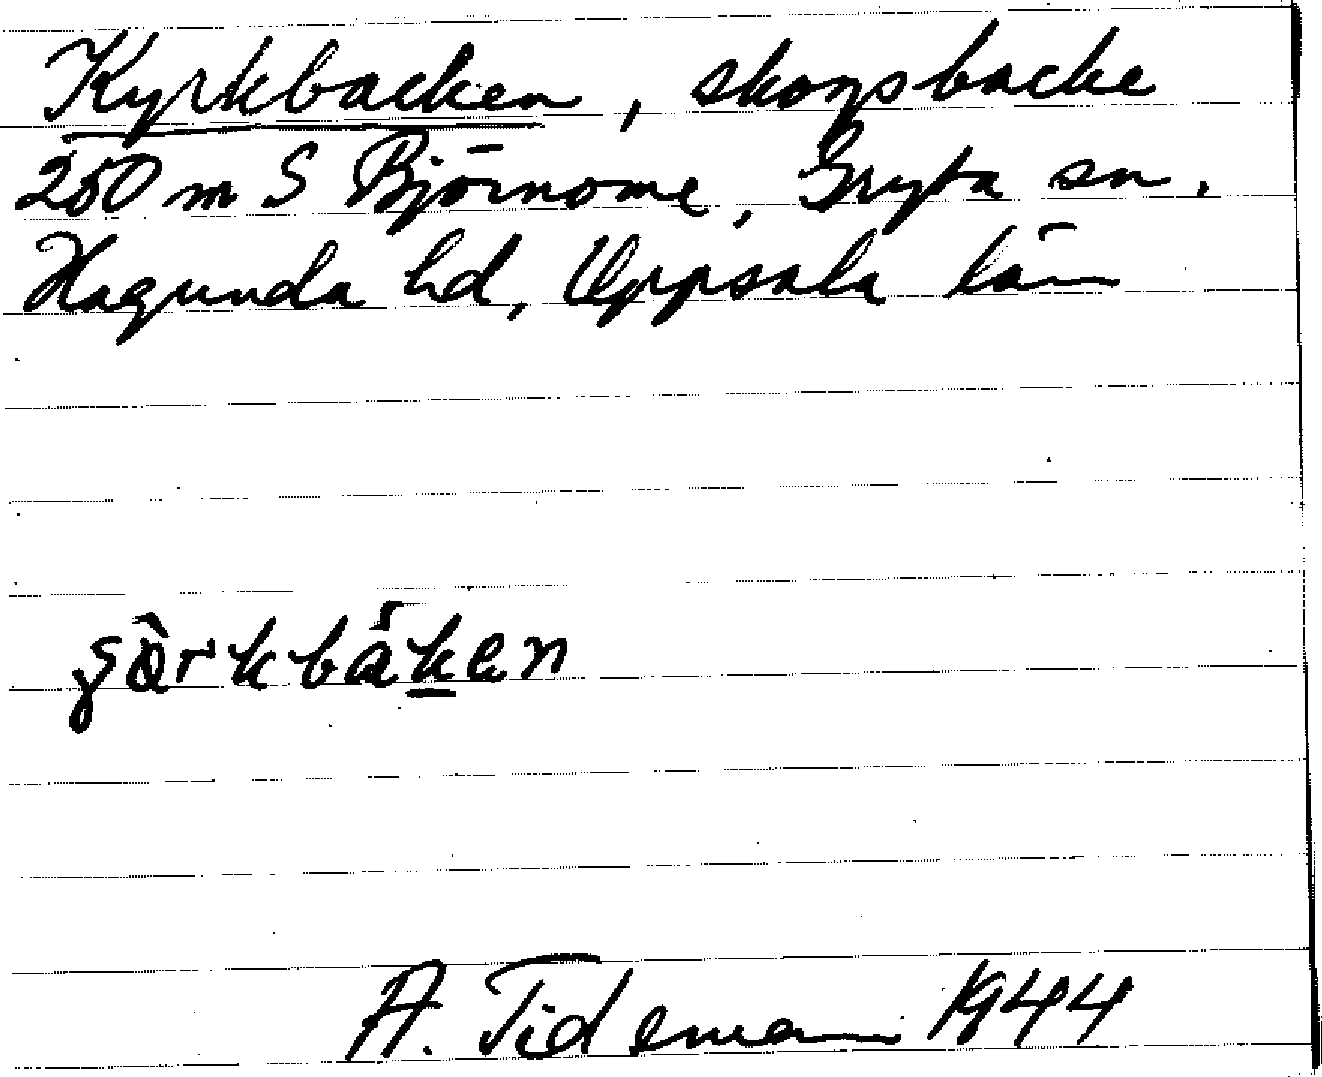 Kyrkbacken, skogsbacke
250 m S Björnome, Gryta sn.
Hagunda hd, Uppsala län
A. Tideman 1944